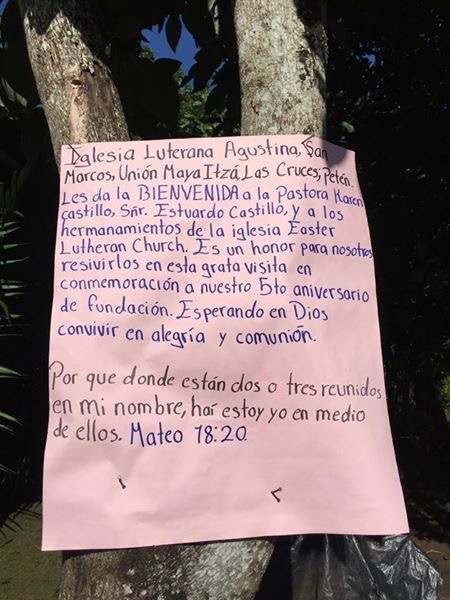 Iglesia Luterana Agustina, San
Marcos, Unión Maya Itzá, Las Cruces; Petén.
Les da la BIENVENIDA a la Pastora Karen
castillo, Sñr. Estuardo Castillo, y a los
hermanamientos de la iglesia Easter
Lutheran Church. Es un honor para nosotros
resivirlos en esta grata visita en
conmemoración a nuestro 5to aniversario
de fundación. Esperando en Dios
convivir en alegría y comunión.
Por que donde están dos o tres reunidos
en mi nombre, haí estoy yo en medio
de ellos. Mateo 18:20.